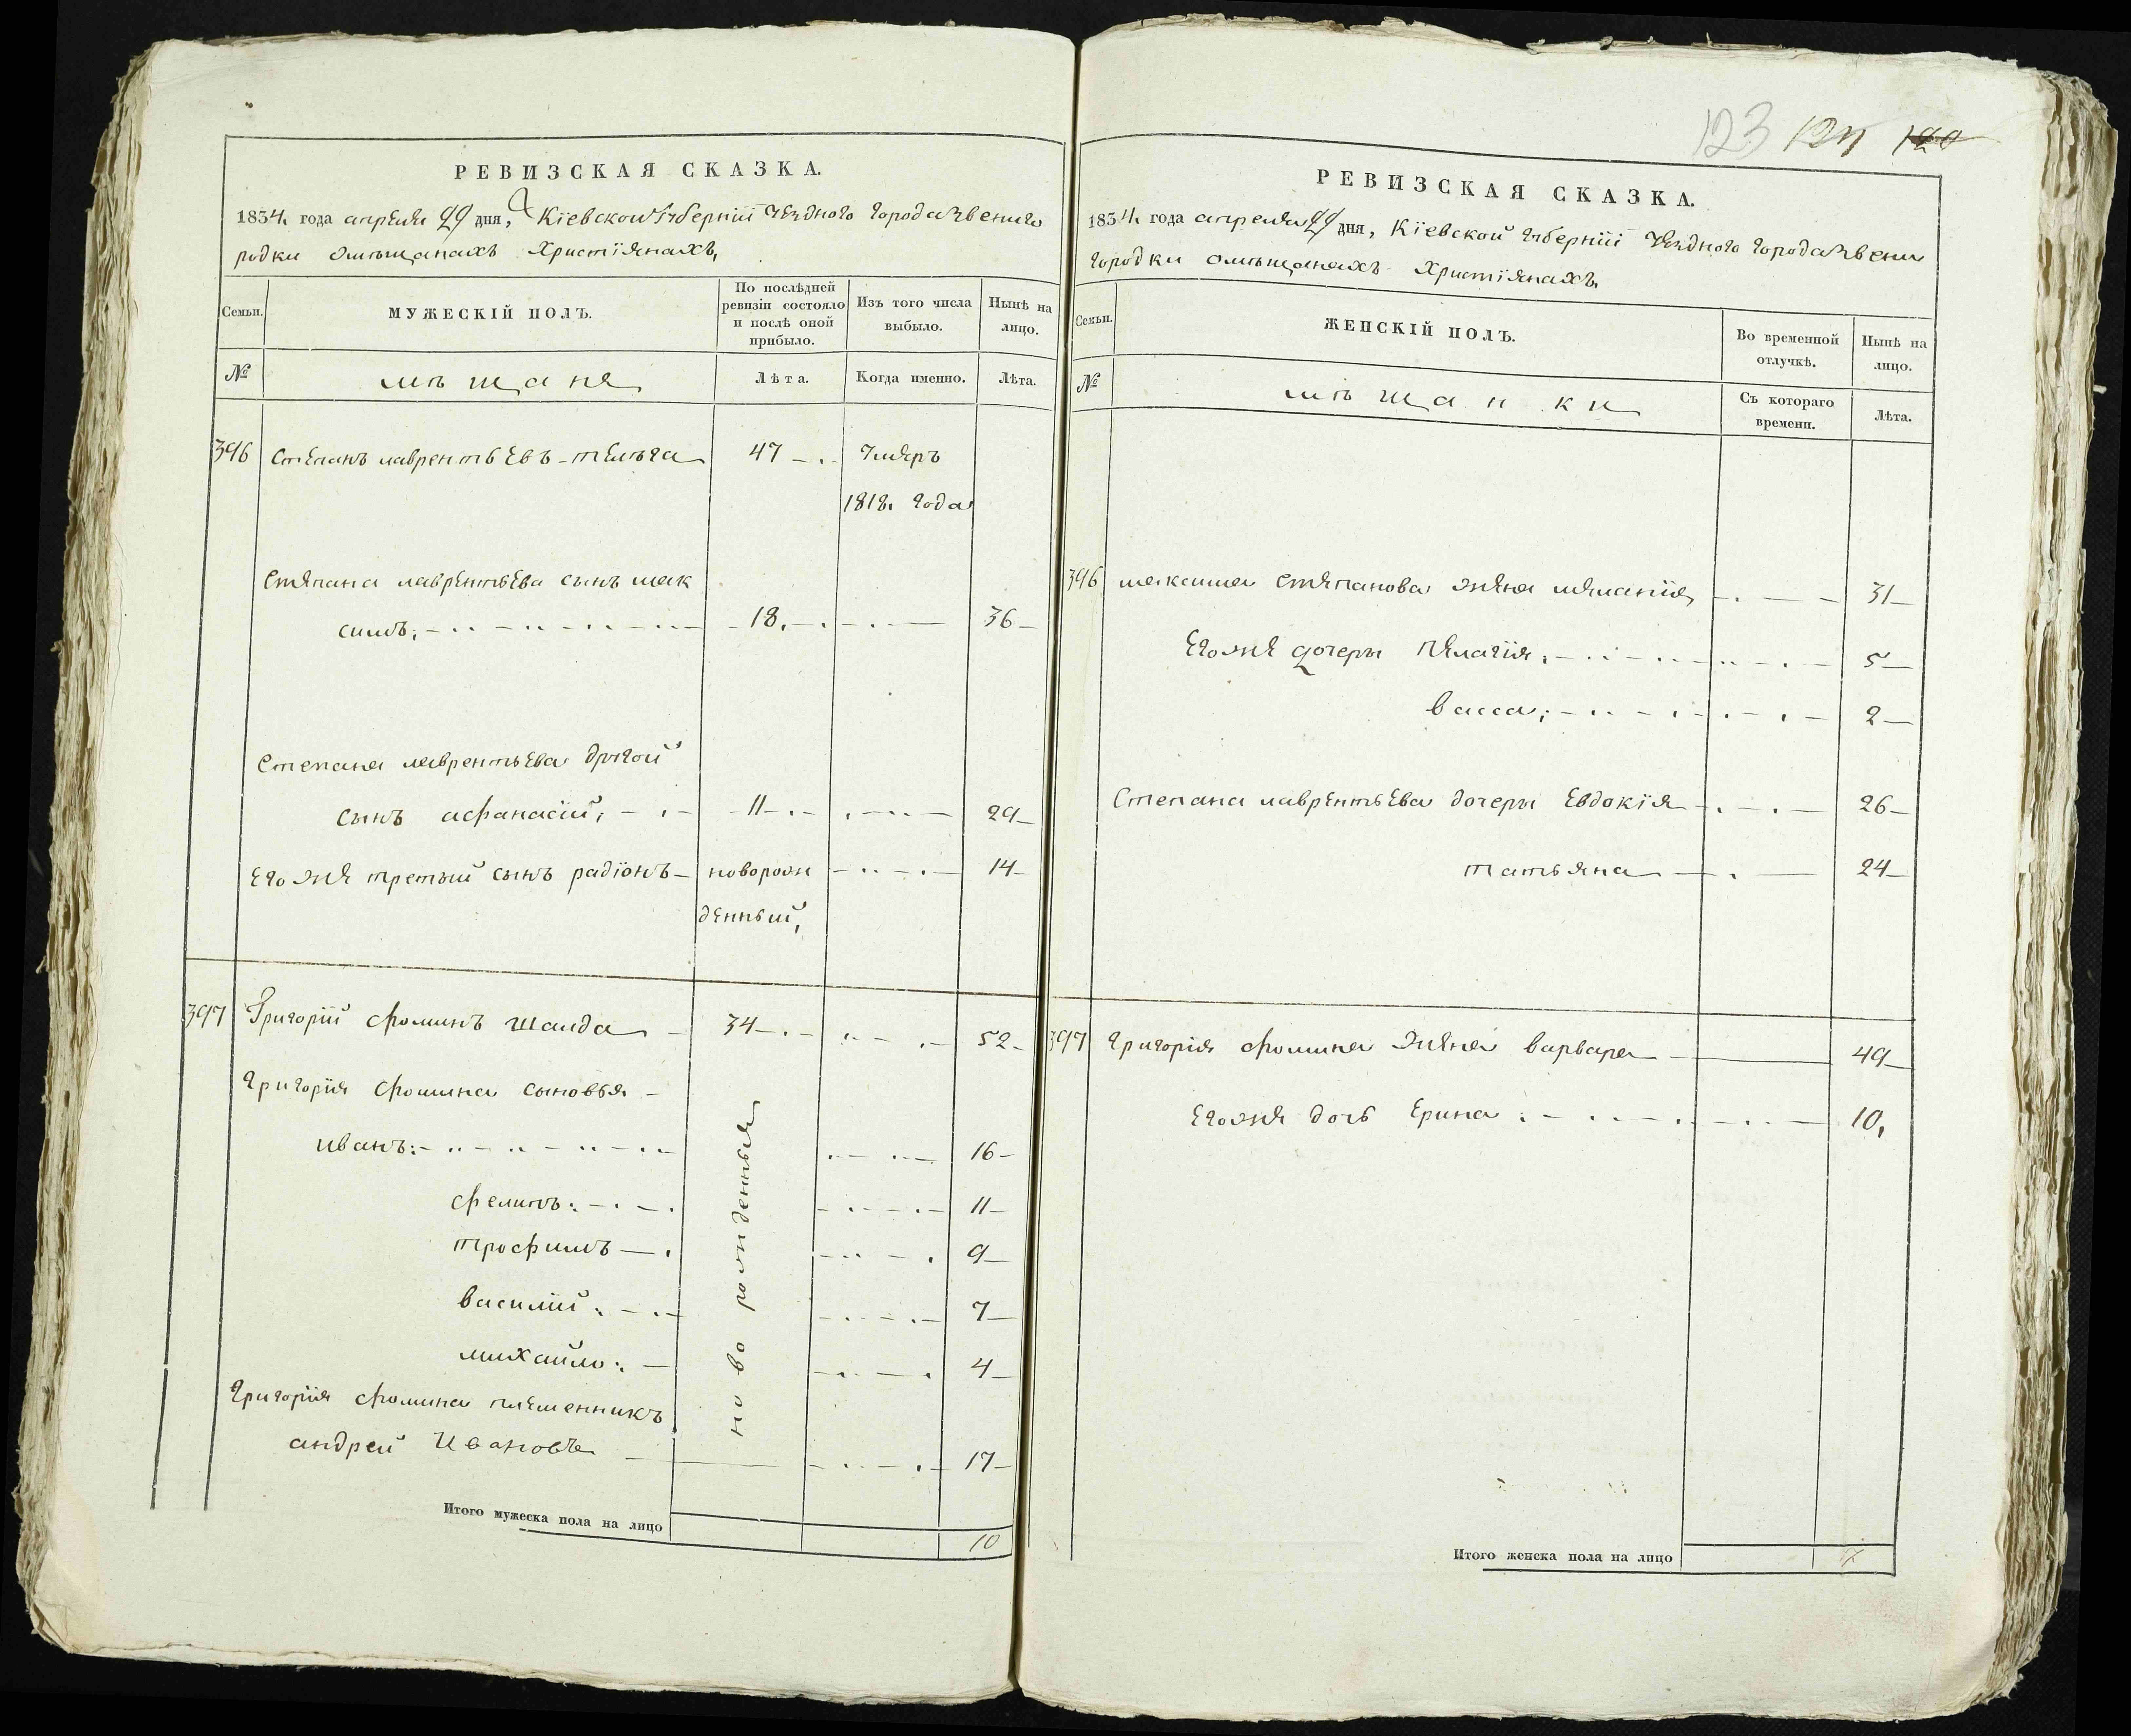 РЕВИЗСКАЯ СКАЗКА.
1834 года апреля 29 дня, Кіевской губерніи Уездного города Звениго
родки омѣщанахъ Христіянахъ,
Семьи.
МУЖЕСКІЙ ПОЛЪ.
По послѣдней ревизіи состояло и послѣ оной прибыло.
Изъ того числа выбыло.
Нынѣ на лицо.
№
мѣщаня
Лѣта.
Когда именно.
Лѣта.
396 Степанъ лаврентьевъ 47 Умяръ
1818. года
Стяпана лаврентьева сынъ мак
симъ; 18. 36
Степана лаврентьева другой
сынъ афанасій, 11 29
Егожя третьий сынъ радіонъ новорож 14
денный,
397 Григорій фоминъ 34 52
григорія фомина сыновья
иванъ: 16
филипъ: 11
трофимъ 9
василій: 7
михайло: 4
новорожденныя
григорія фомина племенникъ
андрей Ивановъ 17
Итого мужеска пола на лицо 10
123 124 120
РЕВИЗСКАЯ СКАЗКА.
1834 года апреля 29 дня, Кіевской губерніи Уездного города Звени
городки омѣщанахъ Христіянахъ,
Семьи.
ЖЕНСКІЙ ПОЛЪ.
Во временной отлучкѣ.
Нынѣ на лицо.
№
мѣщанки
Съ котораго времени.
Лѣта.
396 максима стяпанова жяна мяланія, 31
Егожя дочеры пялагія, 5
васса; 2
Степана лаврентьева дочеры Евдокія 26
татьяна 24
397 григорія фомина жяна варвара 49
Егожя дочь Ерина: 10,
Итого женска пола на лицо 7